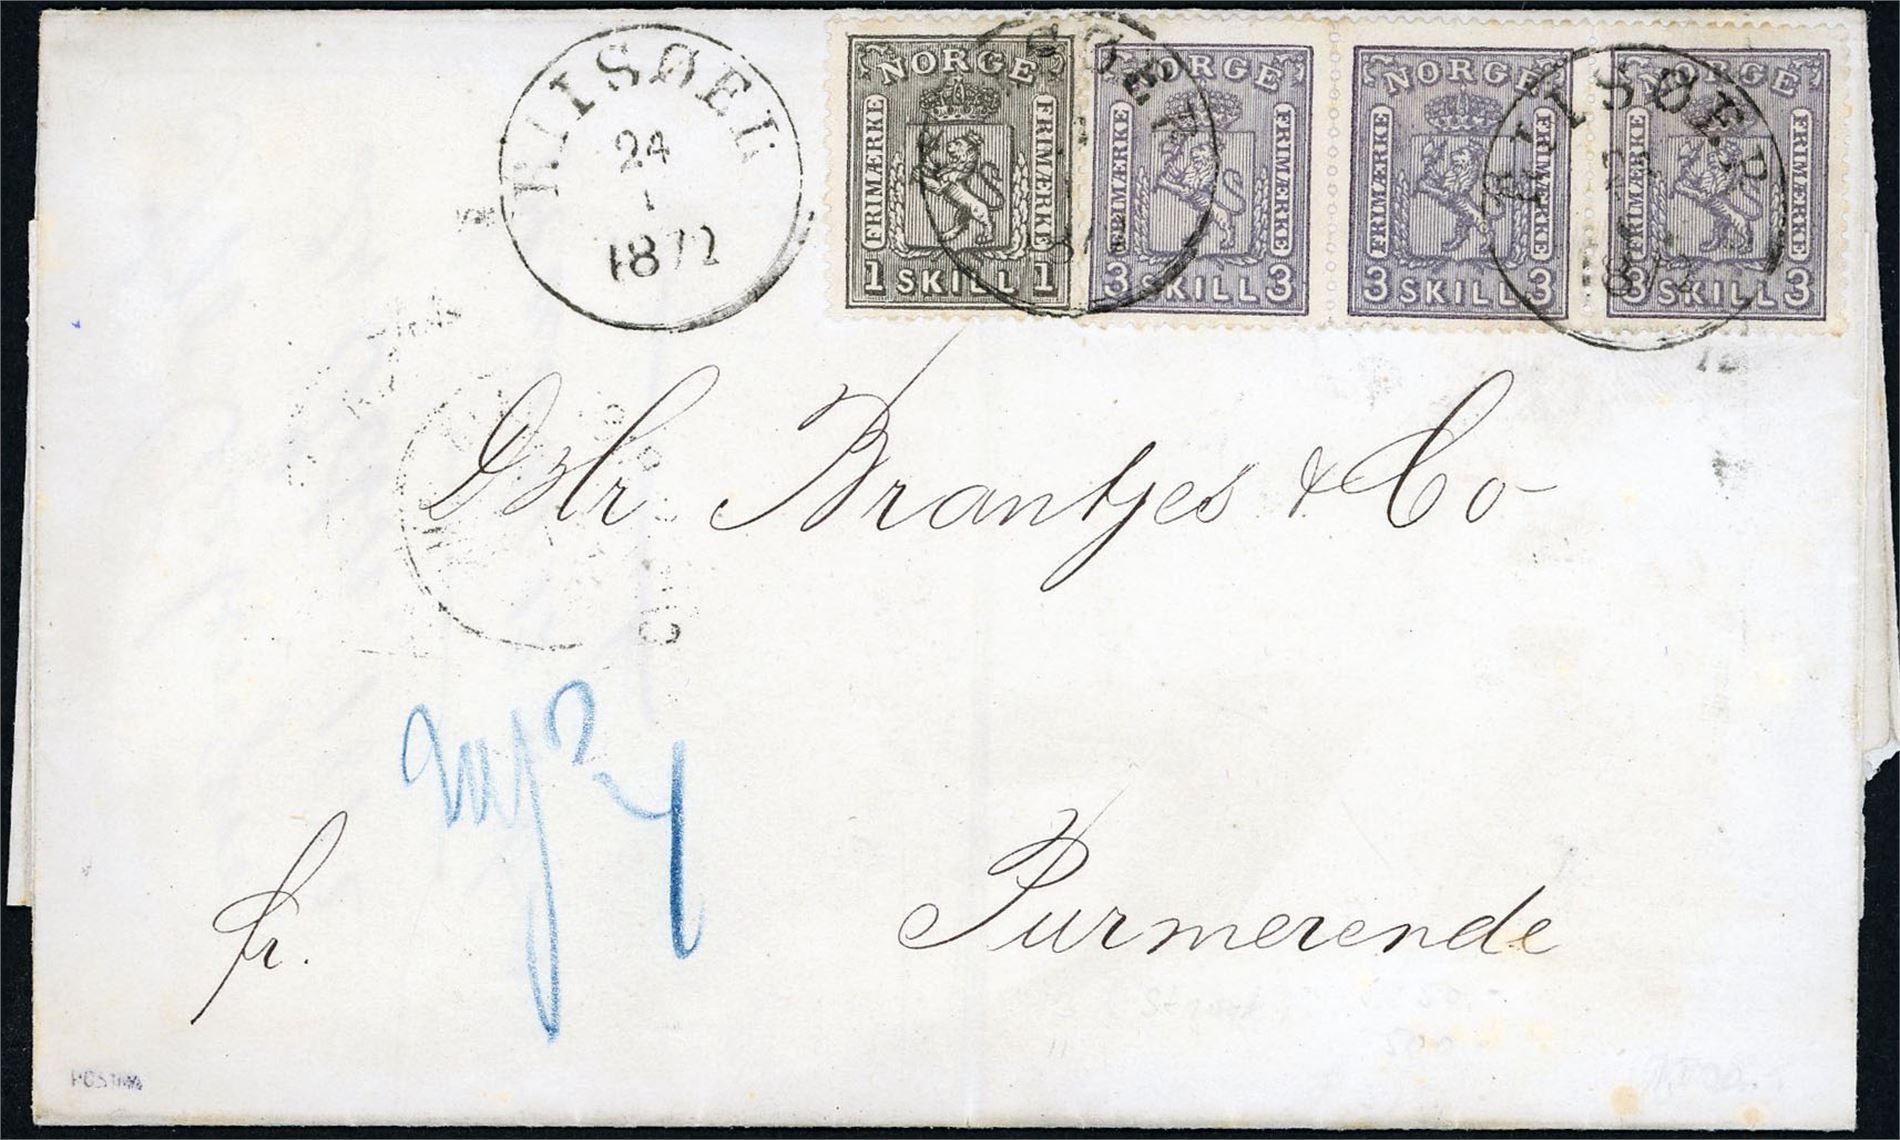 RISØER
24
1
1872
NORGE
FRIMÆRKE FRIMÆRKE
1 SKILL 1
NORGE
FRIMÆRKE FRIMÆRKE
3 SKILL 3
NORGE
FRIMÆRKE FRIMÆRKE
3 SKILL 3
NORGE
FRIMÆRKE FRIMÆRKE
3 SKILL 3
RISØER
RISØER
1872
Brantjes & Co
fr.
Purmerende